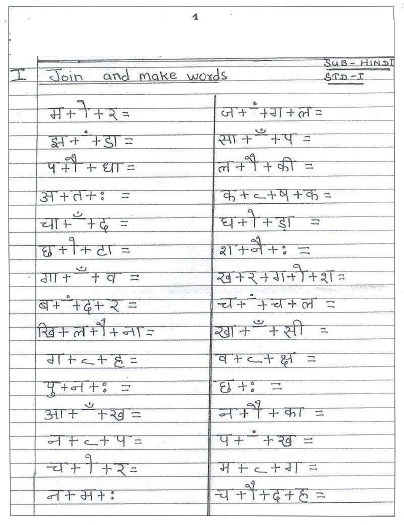 1
SUB-HINDI
I Join and make words STD-I
म + ो + र =
झ + ं + डा =
प + ौ + धा =
अ + त + : =
चा + ँ + द =
छ + ो + टा =
गा + ँ + व =
ब + ं + द + र =
खि + ल + ौ + ना =
ग + ृ + ह =
पु + न + : =
आ + ँ + ख =
न + ृ + प =
च + ो + र =
न + म + :
ज + ं + ग + ल =
सा + ँ + प =
ल + ौ + की =
क + ृ + ष + क =
घ + ो + ड़ा =
श + नै + : =
ख + र + ग + ो + श =
च + ं + च + ल =
खा + ँ + सी =
व + ृ + क्ष =
छ + : =
न + ौ + का =
प + ं + ख =
म + ृ + ग =
च + ौ + द + ह =